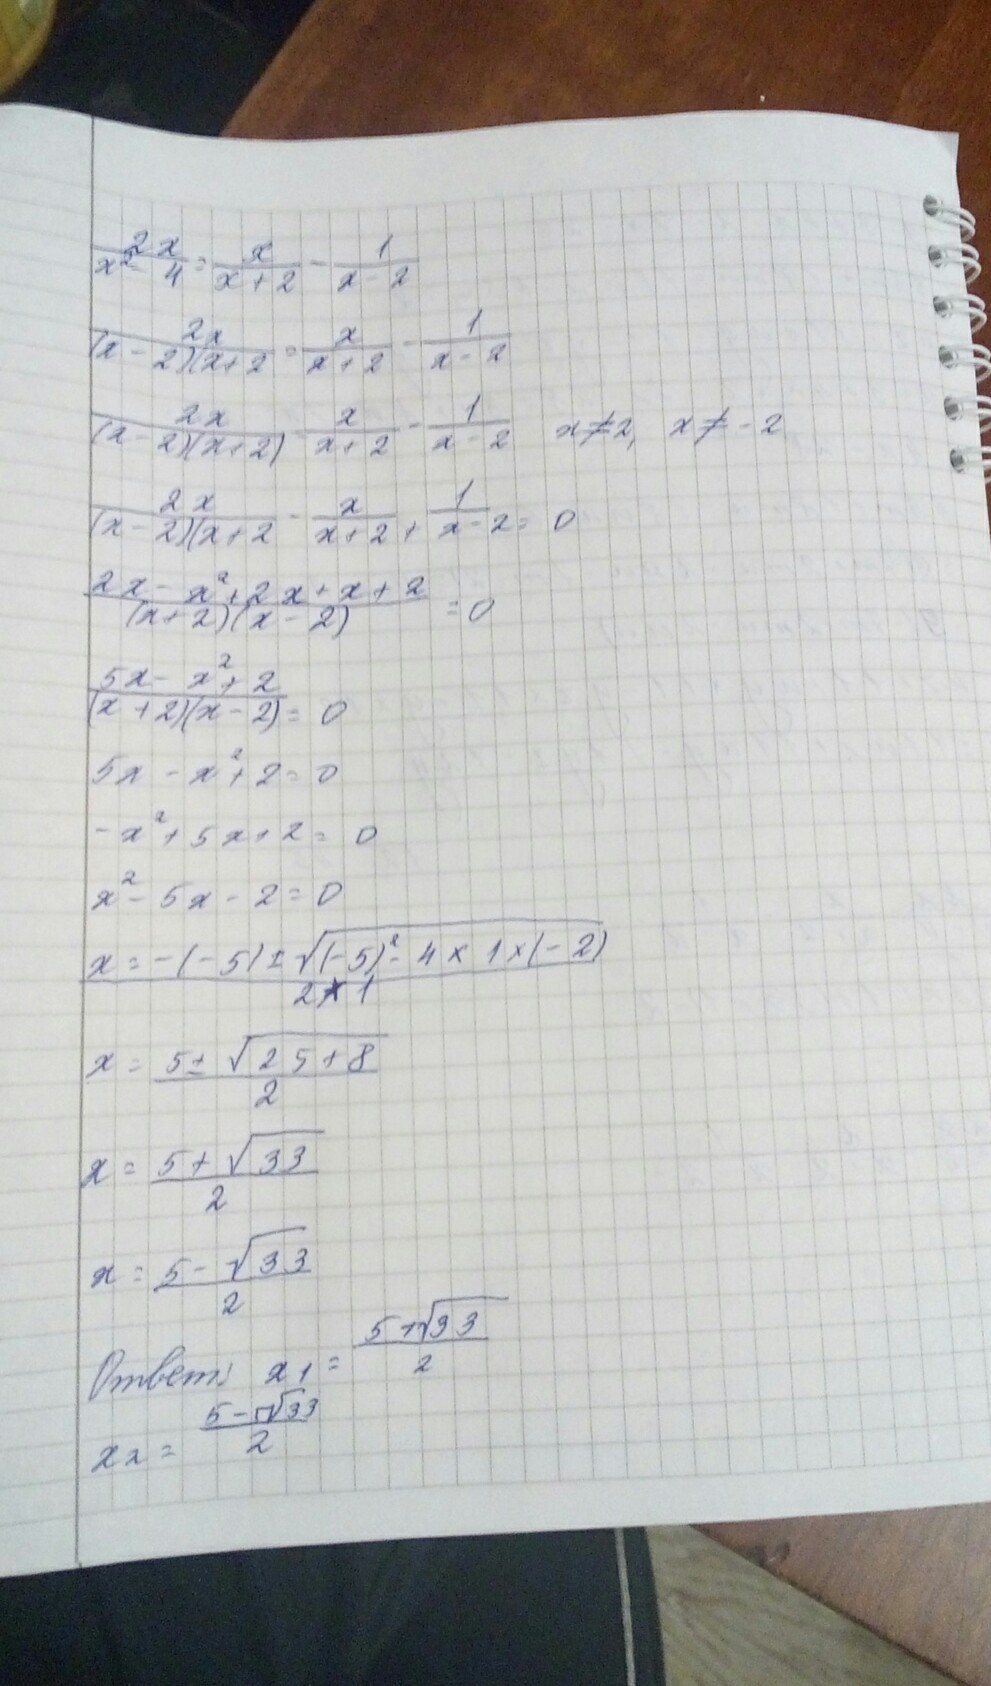 2x/(x² - 4) = x/(x + 2) - 1/(x - 2)
2x/((x - 2)(x + 2) = x/(x + 2) - 1/(x - 2)
2x/((x - 2)(x + 2)) = x/(x + 2) - 1/(x - 2) x ≠ 2, x ≠ - 2
2x/((x - 2)(x + 2) - x/(x + 2) + 1/(x - 2) = 0
(2x - x² + 2x + x + 2)/((x + 2)(x - 2)) = 0
(5x - x² + 2)/((x + 2)(x - 2)) = 0
5x - x² + 2 = 0
- x² + 5x + 2 = 0
x² - 5x - 2 = 0
x = (-(-5) ± √((-5)² - 4 × 1 × (-2)))/(2 × 1)
x = (5 ± √(25 + 8))/2
x = (5 + √33)/2
x = (5 - √33)/2
Ответ: x1 = (5 + √33)/2
x2 = (5 - √33)/2